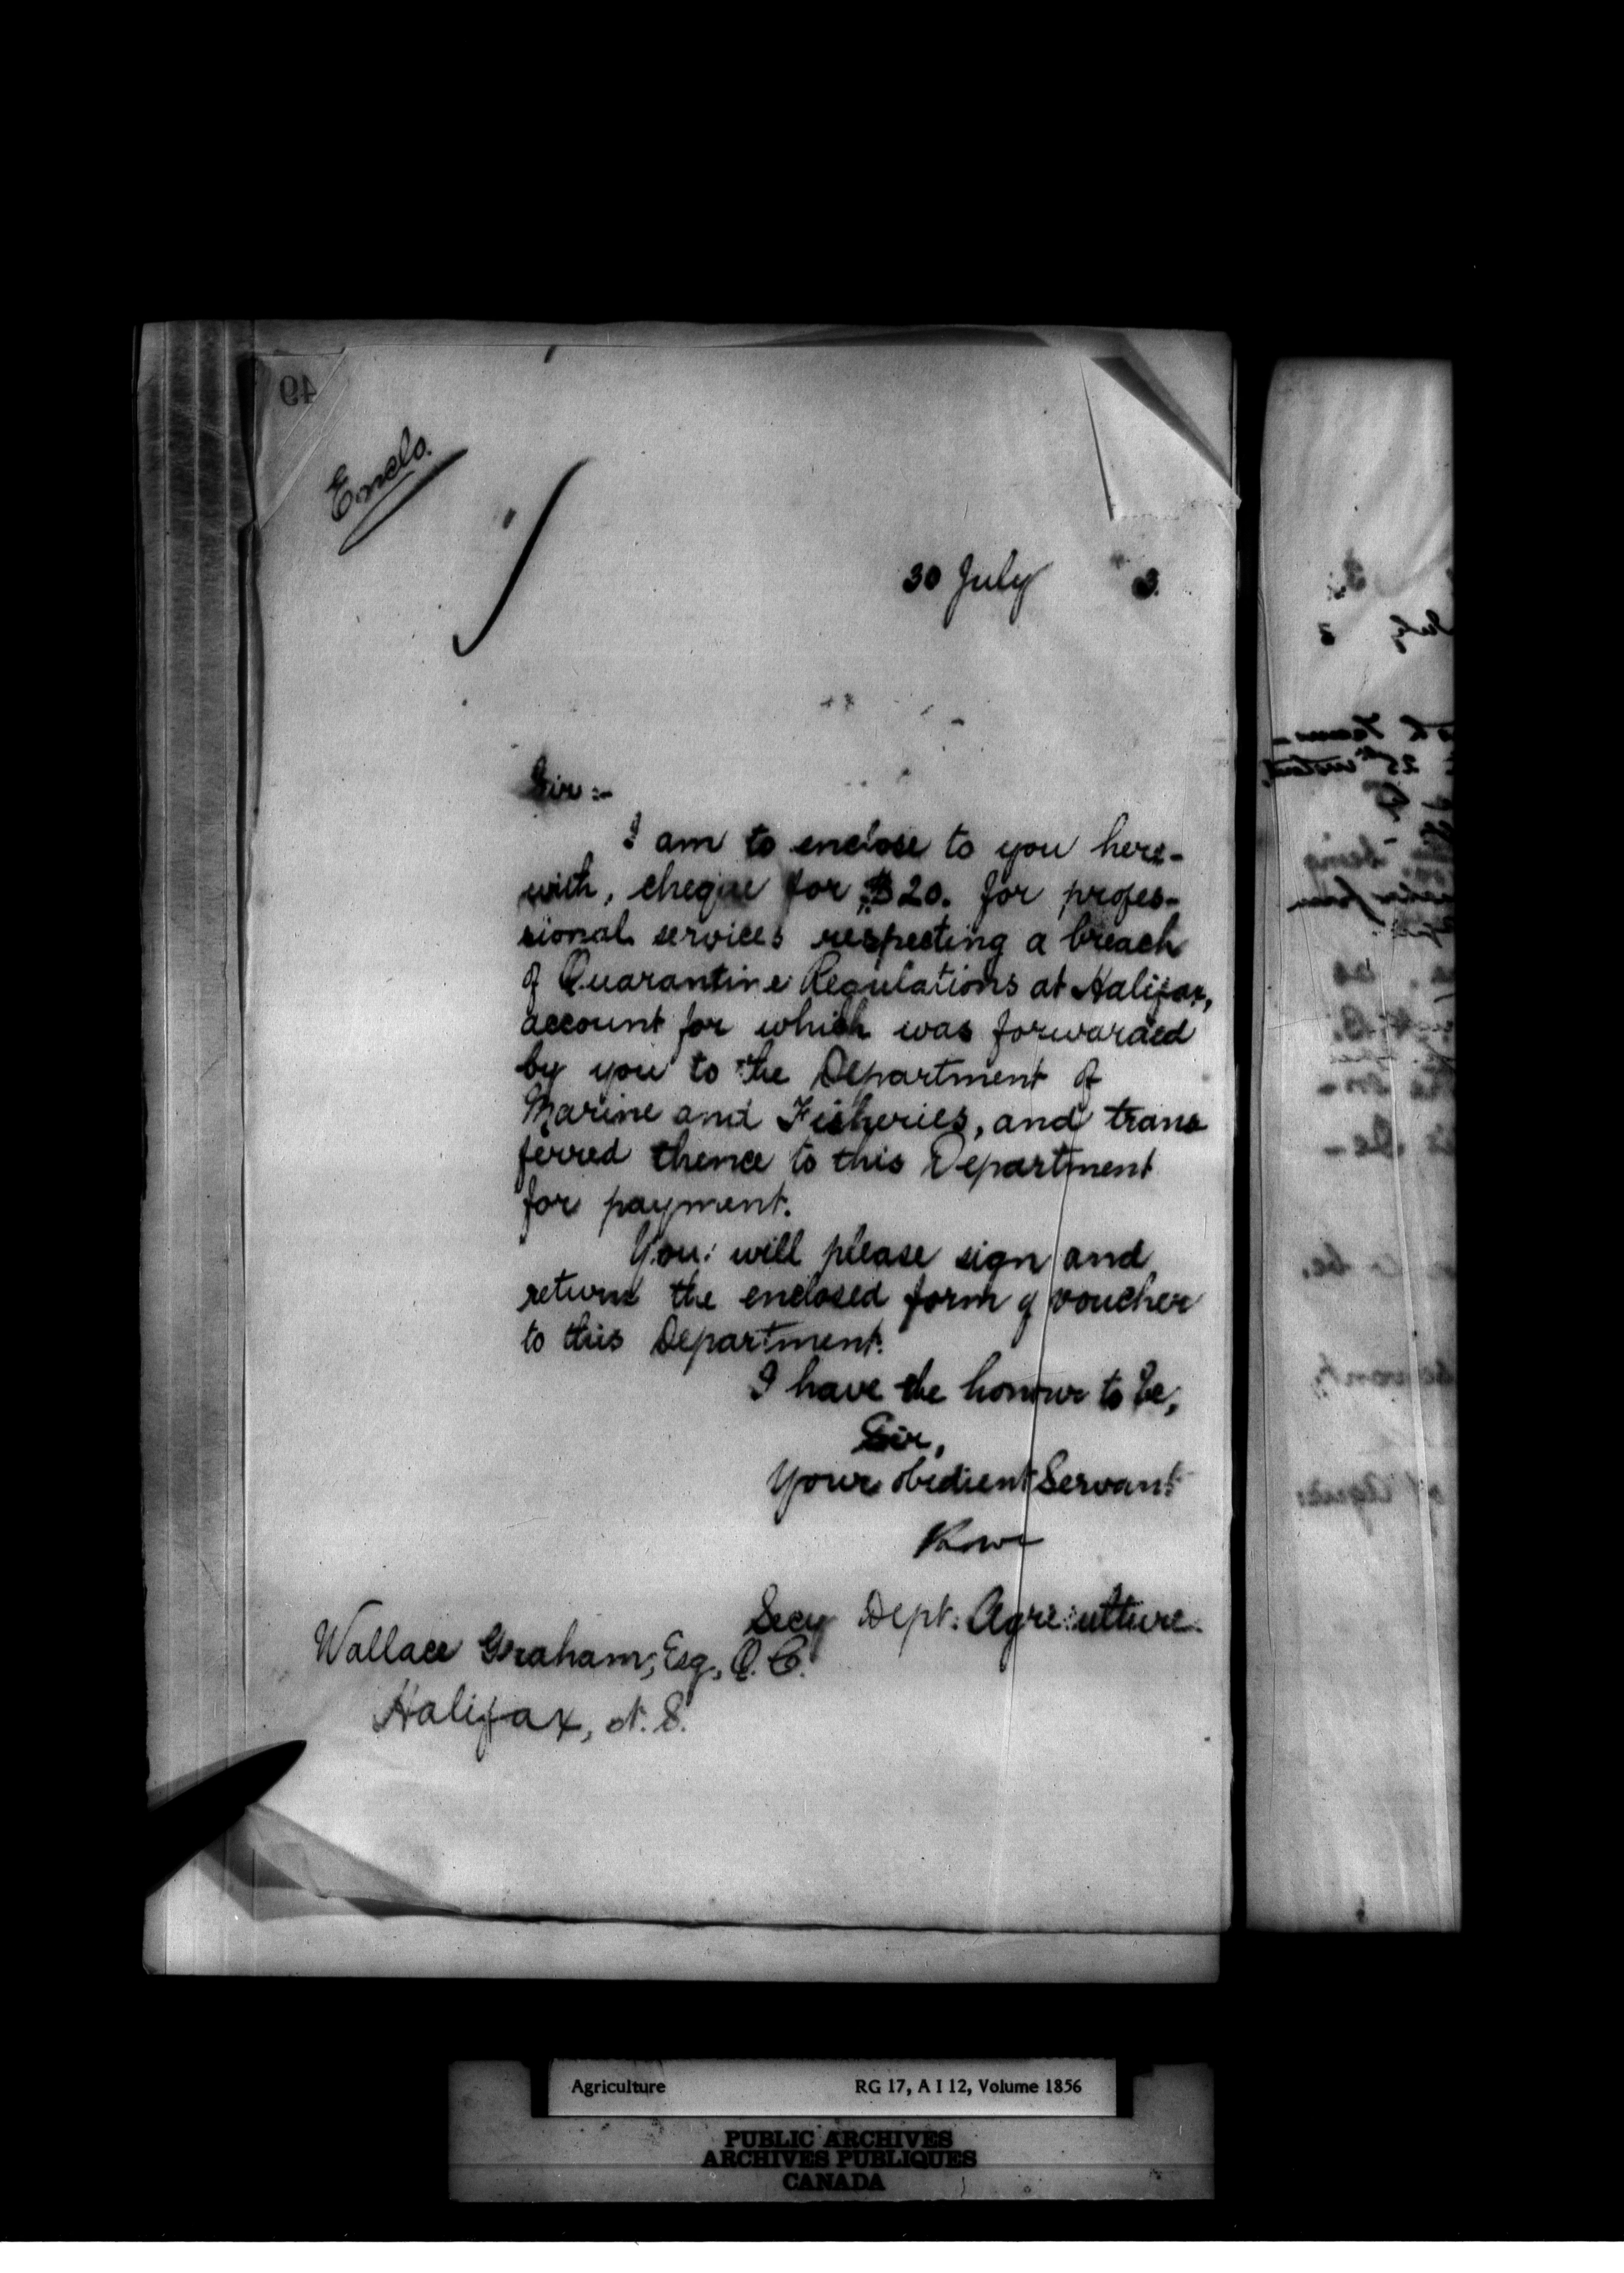 49
Enclo.
30 July 3.
Sir:-
I am to enclose to you here-
with, cheque for $20. for profes-
sional services respecting a breach
of Quarantine Regulations at Halifax,
account for which was forwarded
by you to the Department of
Marine and Fisheries, and trans
ferred thence to this Department
for payment.
You will please sign and
return the enclosed form of voucher
to this Department.
I have the honour to be,
Sir,
Your obedient Servant
Secy Dept. Agriculture.
Wallace Graham, Esq., Q.C.
Halifax, N.S.
July 3
Agriculture RG 17, A I 12, Volume 1856
PUBLIC ARCHIVES
ARCHIVES PUBLIQUES
CANADA